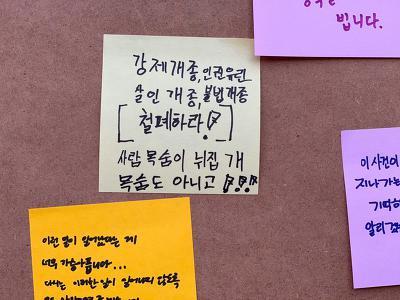 빕니다.
강제개종, 인권유린
살인 개종, 불법개종
[철폐하라!]
사람 목숨이 뉘집 개
목숨도 아니고 !!!
이런 일이 있었다는 게
너무 가슴아픕니다...
다시는 이러한 일이 일어나지 않도록
이 사건이
지나가는
기억하
알리겠